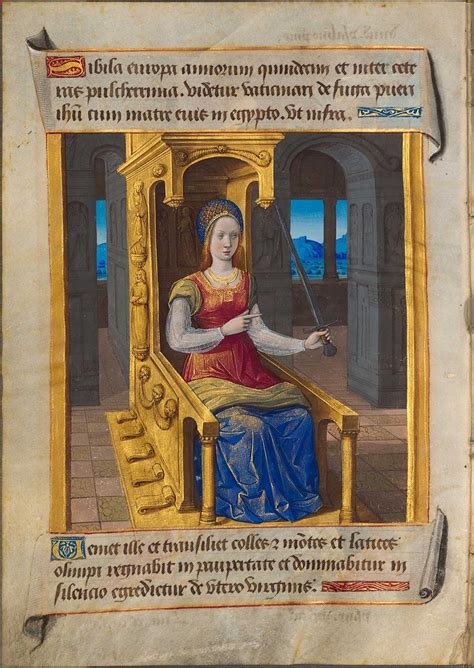 Sibila europa annorum quindecim et inter cete
ras pulcherrima. Videtur vaticinari de fuga pueri
ihũ cum matre eius in egypto. Vt infra.
Veniet ille et transiliet colles ⁊ mõtes et latices
olimpi regnabit in paupertate et dominabitur in
silencio egredietur de vtero virginis.